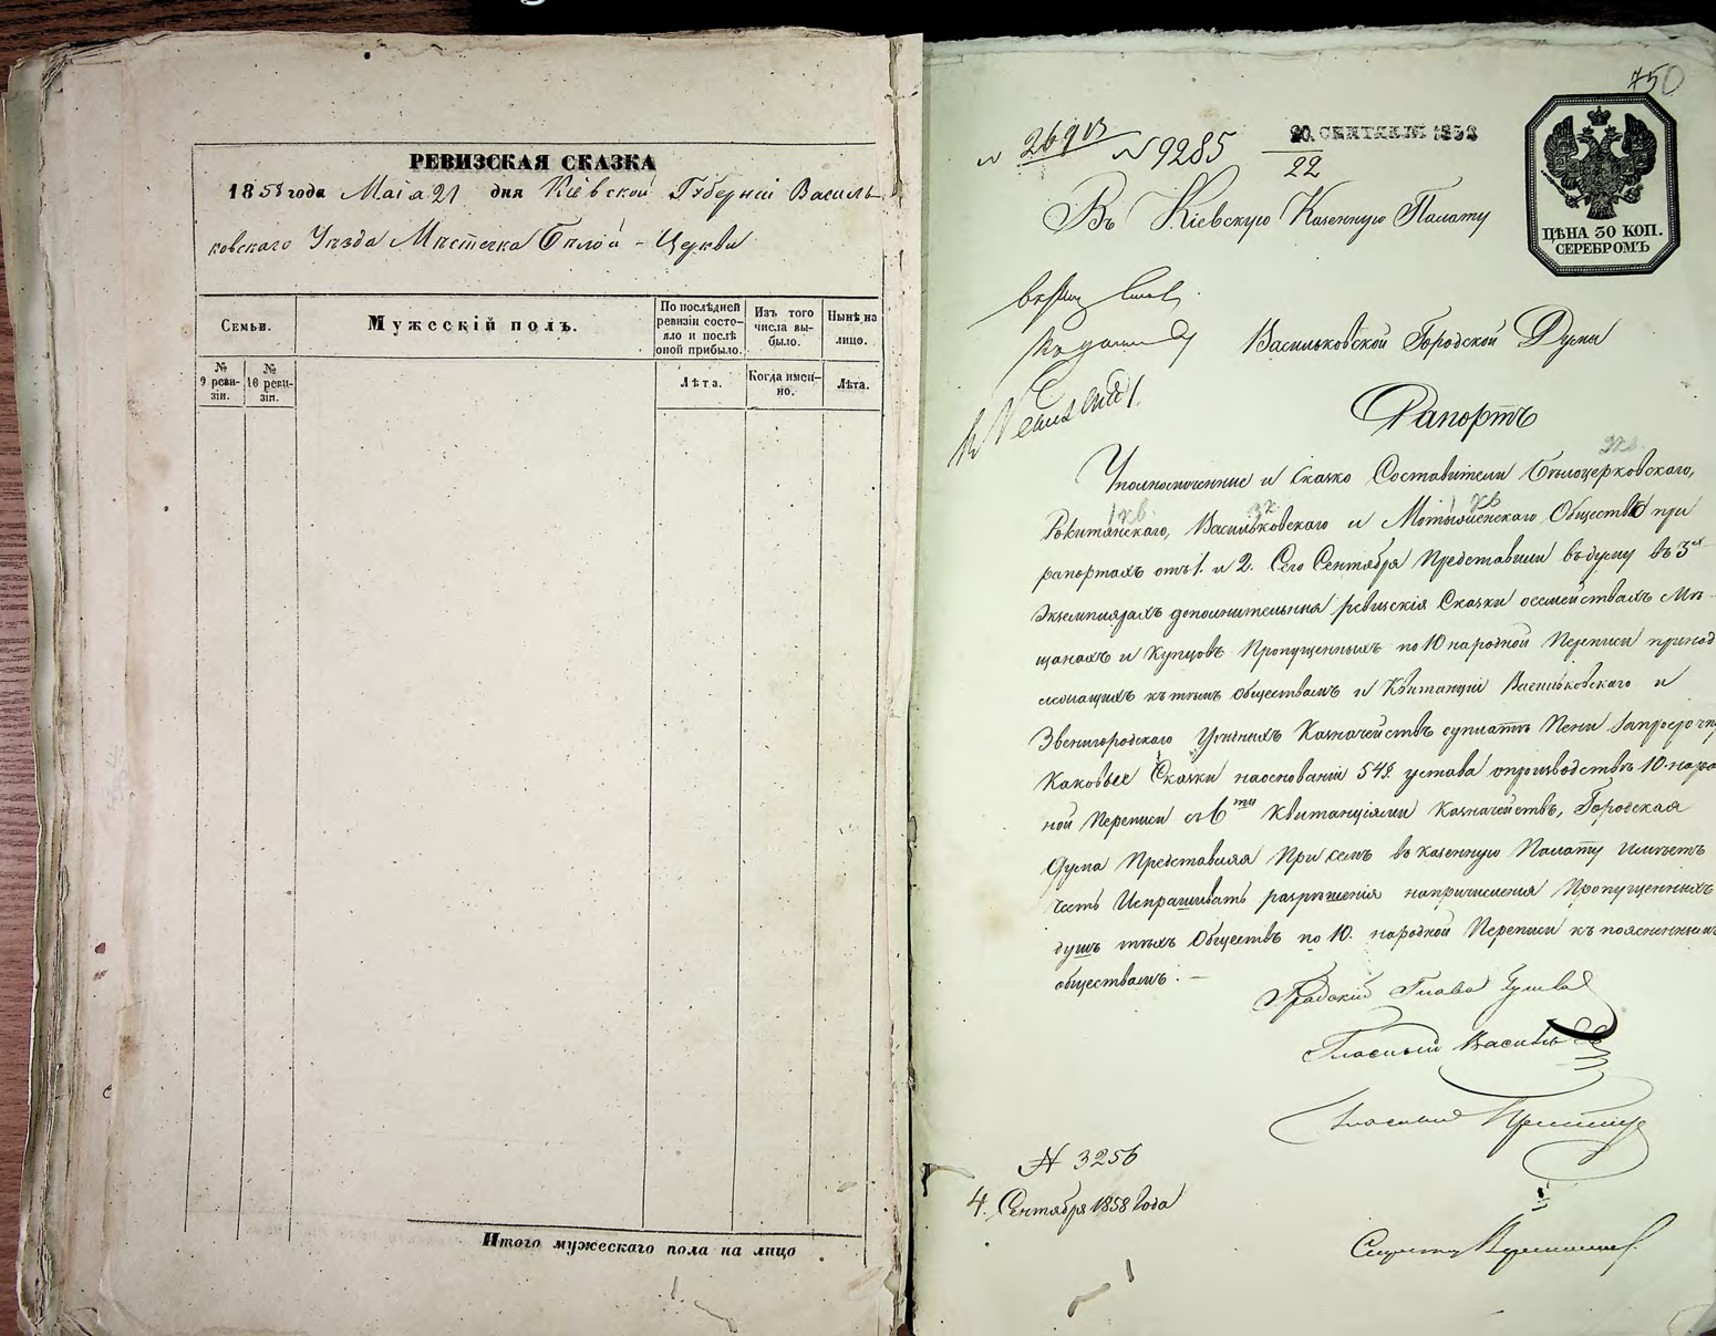 РЕВИЗСКАЯ СКАЗКА
1858 года Маія 21 дня Кіевской Губерніи Василь-
ковскаго Уѣзда Мѣстечка Бѣлой-Церкви
Семьи.
Мужескій полъ.
По послѣдней
ревизіи состо-
яло и послѣ
оной прибыло.
Изъ того
числа вы-
было.
Нынѣ на
лицо.
№
9 реви-
зіи.
№
10 реви-
зіи.
Лѣта.
Когда имен-
но.
Лѣта.
Итого мужескаго пола на лицо
750
№ 9285
20 СЕНТЯБРЯ 1858
22
ЦѢНА 30 КОП.
СЕРЕБРОМЪ
Въ Кіевскую Казенную Палату
Васильковской Городской Думы
Рапортъ
Уполномоченные и Сказко Составители Бѣлоцерковскаго,
Рокитянскаго, Васильковскаго и Мотыжинскаго Обществъ при
рапортахъ отъ 1. и 2. Сего Сентября Представили въ думу въ 3хъ
Экземплярахъ дополнительныя ревизскія Сказки осемействахъ Мѣ-
щанахъ и Купцовъ Пропущенныхъ по 10 народной Переписи принад
лежащихъ къ тѣмъ обществамъ и Квитанціи Васильковскаго и
Звенигородскаго Уѣздныхъ Казначействъ суплатѣ Пени Запросрочку
Каковые Сказки наоснованіи 54§. устава опроизводствѣ 10. народ
ной Переписи съ 6ти Квитанціями Казначействъ, Городская
Дума Представляя При семъ въ казенную Палату Имѣетъ
честь Испрашивать разрѣшенія напричисленія Пропущенныхъ
душъ тѣхъ Обществъ по 10. народной Переписи къ поясненнымъ
обществамъ. —
Градскій Глава
Гласный Васильев
Гласный
№ 3256
4. Сентября 1858 Года